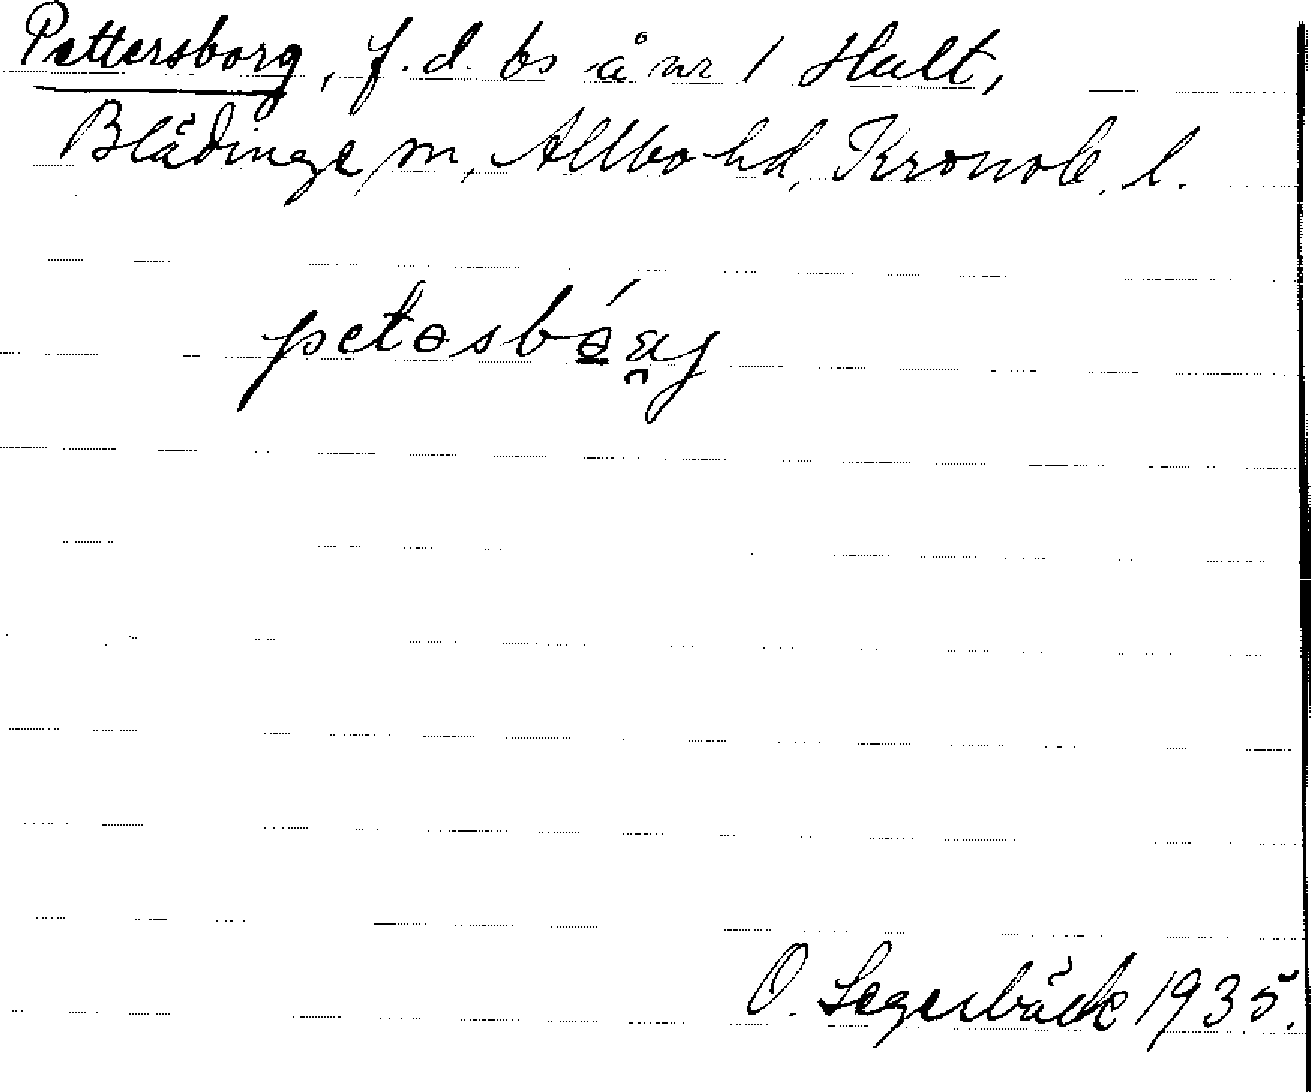 Pettersborg, f.d. bs å nr 1 Hult,
Blädinge sn, Allbo hd, Kronob. l.
O. Segerbäck 1935.